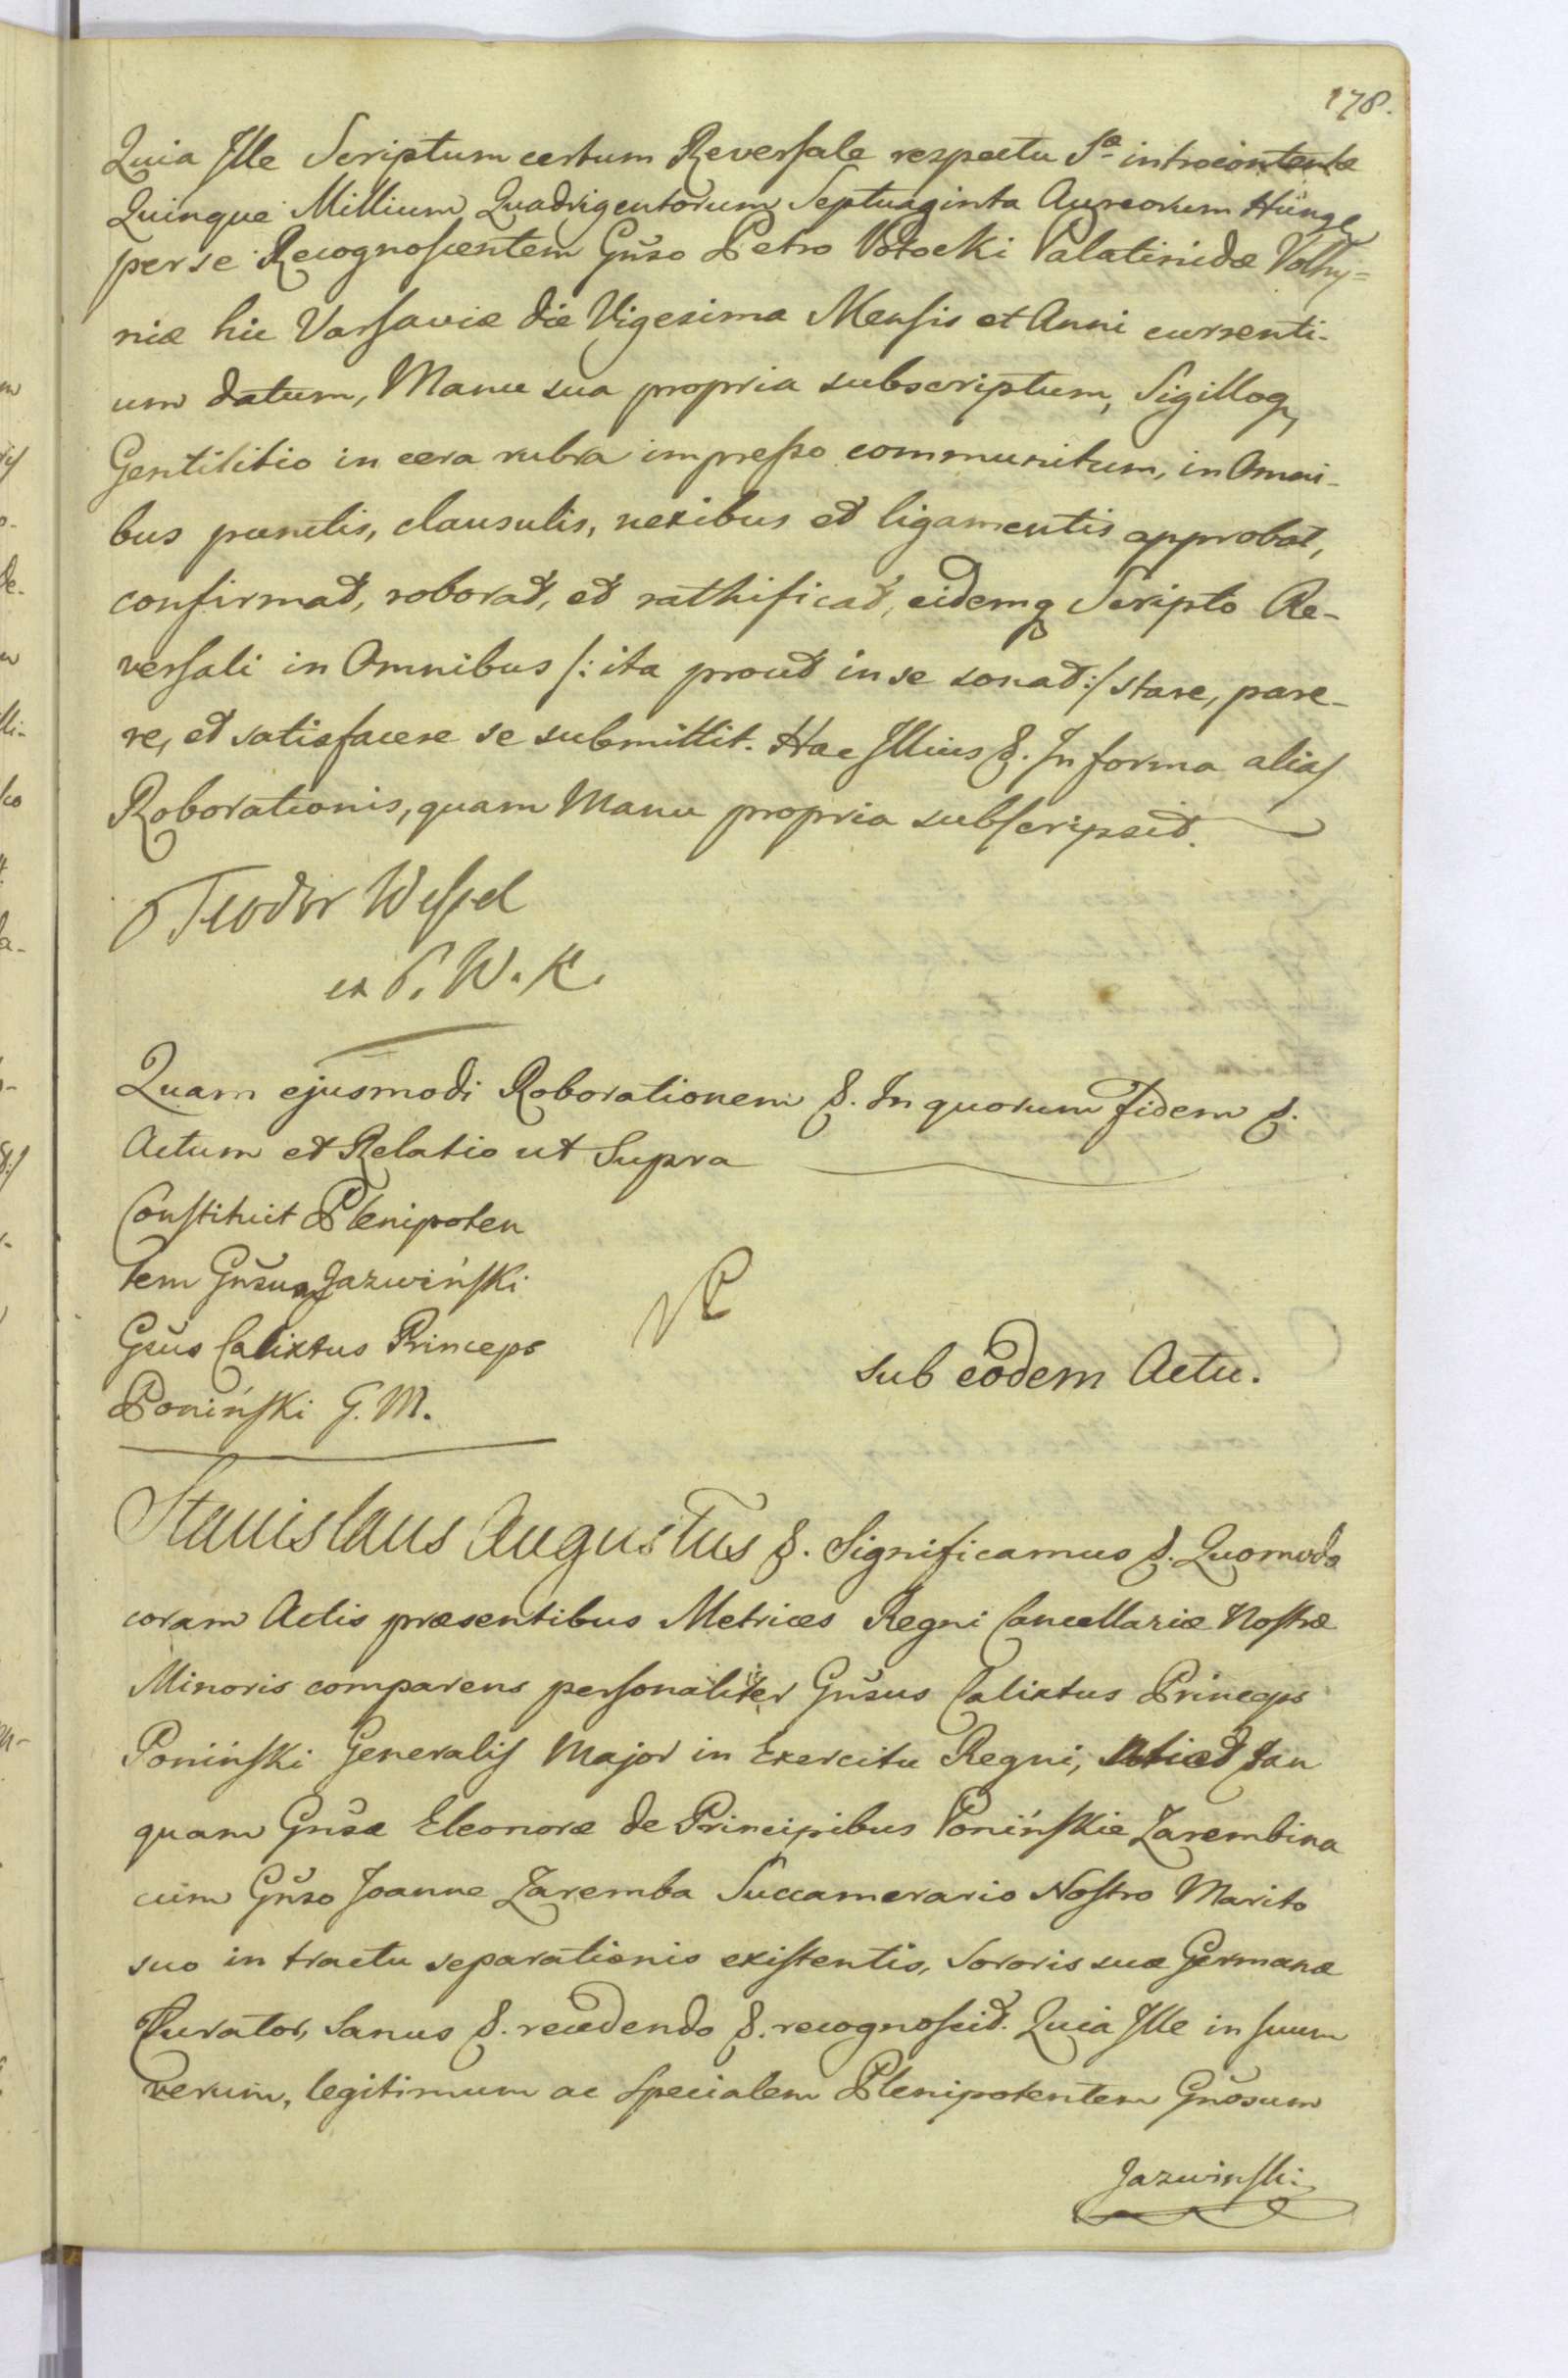 178.
Quia Ille Scriptum certum Reversale respectu Sæ introcontentæ
Quinque Millium Quadrigentorum Septuaginta Aureorum Hung
per se Recognoscentem Gñso Petro Potocki Palatinidæ Volhy=
niæ hic Varsaviæ die Vigesima Mensis et Anni currenti-
um datum, Manu sua propria subscriptum, Sigilloq
Gentilitio in cera rubra impresso communitum, in Omni-
bus punctis, clausulis, nexibus et ligamentis approbat,
confirmat, roborat, et rathificat, eidemq Scripto Re-
versali in Omnibus /: ita prout in se sonat :/ stare, pare-
re, et satisfacere se submittit. Hac Illius &. In forma alias
Roborationis, quam Manu propria subscripsit.
Teodor Wessel
P. W. K.
Quam ejusmodi Roborationem &. In quorum Fidem &.
Actum et Relatio ut Supra
Constituit Plenipoten
tem Gñsum Jazwiński
Gsüs Calixtus Princeps
Poniński G. M.
sub eodem Actu.
Stanislaus Augustus &. Significamus &. Quomodo
coram Actis præsentibus Metrices Regni Cancellariæ Nostræ
Minoris comparens personaliter Gñsus Calixtus Princeps
Poniński Generalis Major in Exercitu Regni, tan
quam Gñsæ Eleonoræ de Principibus Ponińskie Zarembina
cum Gñso Joanne Zaremba Succamerario Nostro Marito
suo in tractu separationis existentis, Sororis suæ Germanæ
Curator, Sanus &. recedendo &. recognoscit. Quia Ille in suum
verum, legitimum ac Specialem Plenipotentem Gñosum
Jazwinski